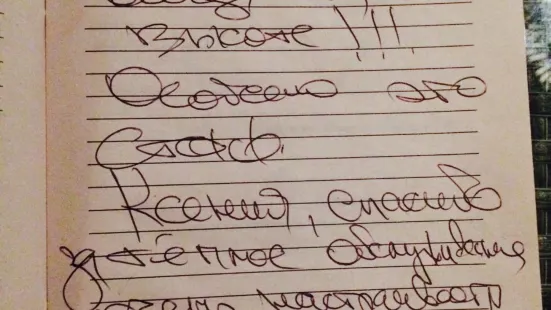 высоте!!!
Особено это
стафф.
Ксения, спасибо
за тёплое обслуживание